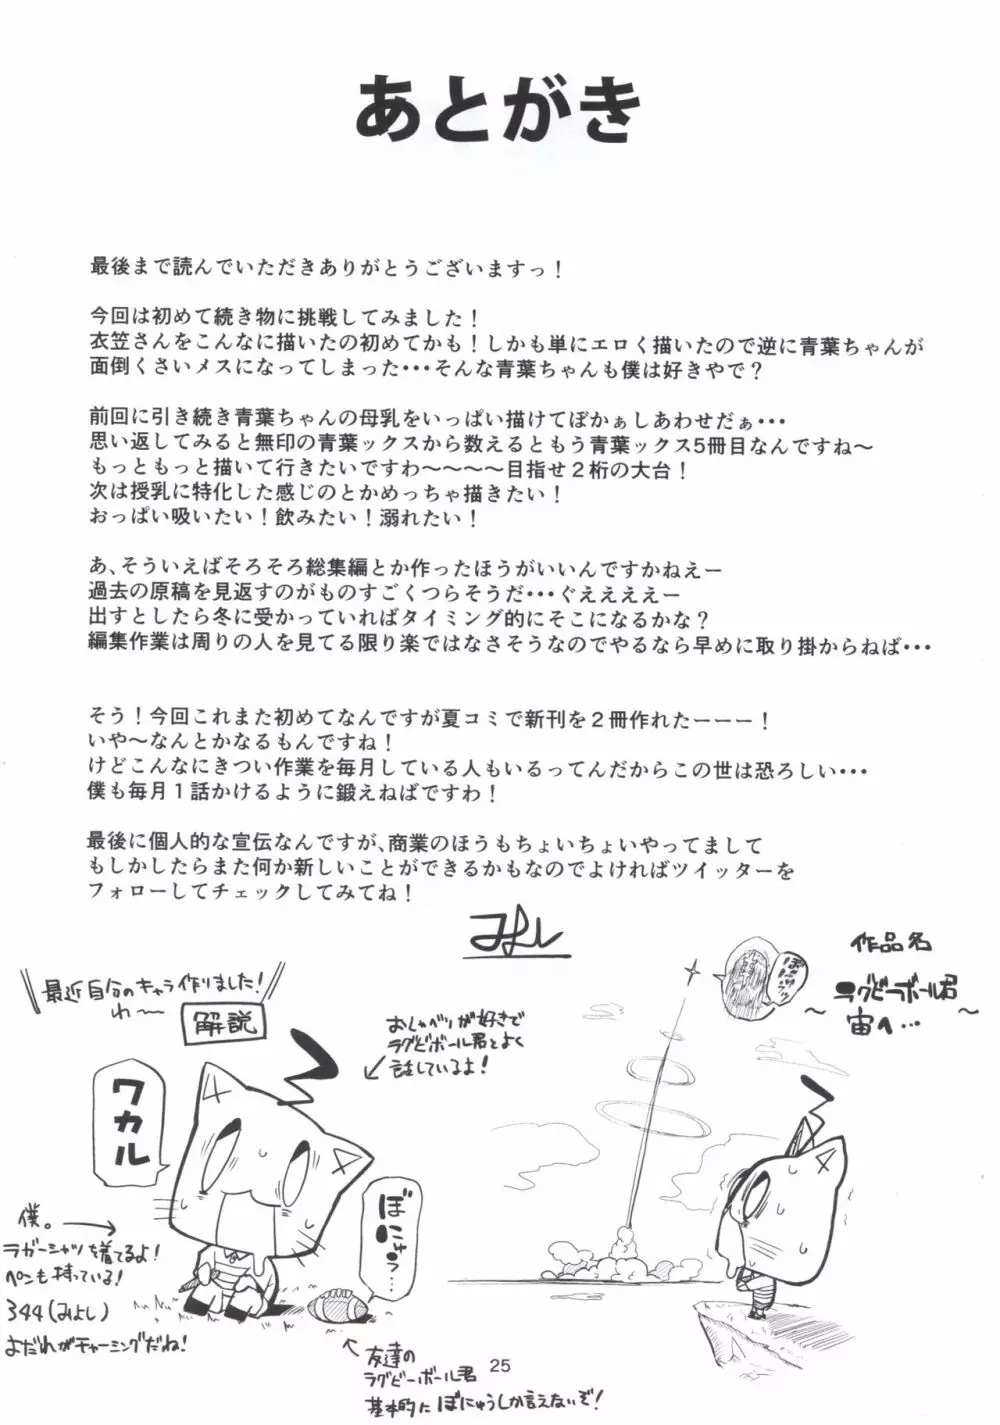 あとがき
最後まで読んでいただきありがとうございますっ！
今回は初めて続き物に挑戦してみました！
衣笠さんをこんなに描いたの初めてかも！しかも単にエロく描いたので逆に青葉ちゃんが
面倒くさいメスになってしまった・・・そんな青葉ちゃんも僕は好きやで？
前回に引き続き青葉ちゃんの母乳をいっぱい描けてぼかぁしあわせだぁ・・・
思い返してみると無印の青葉ックスから数えるともう青葉ックス5冊目なんですね～
もっともっと描いて行きたいですわ～～～～目指せ２桁の大台！
次は授乳に特化した感じのとかめっちゃ描きたい！
おっぱい吸いたい！飲みたい！溺れたい！
あ、そういえばそろそろ総集編とか作ったほうがいいんですかねえー
過去の原稿を見返すのがものすごくつらそうだ・・・ぐええええー
出すとしたら冬に受かっていればタイミング的にそこになるかな？
編集作業は周りの人を見てる限り楽ではなさそうなのでやるなら早めに取り掛からねば・・・
そう！今回これまた初めてなんですが夏コミで新刊を２冊作れたーーー！
いや～なんとかなるもんですね！
けどこんなにきつい作業を毎月している人もいるってんだからこの世は恐ろしい・・・
僕も毎月１話かけるように鍛えねばですわ！
最後に個人的な宣伝なんですが、商業のほうもちょいちょいやってまして
もしかしたらまた何か新しいことができるかもなのでよければツイッターを
フォローしてチェックしてみてね！
みよし
最近自分のキャラ作りました！
わ～
解説
ワカル
おしゃべりが好きで
ラグビーボール君とよく
話しているよ！
ぼにゅう…
僕。
ラガーシャツを着てるよ！
ペンも持っている！
344(みよし)
よだれがチャーミングだね！
友達の
ラグビーボール君
基本的にぼにゅうしか言えないぞ！
作品名
～ラグビーボール君
宙へ…～
25